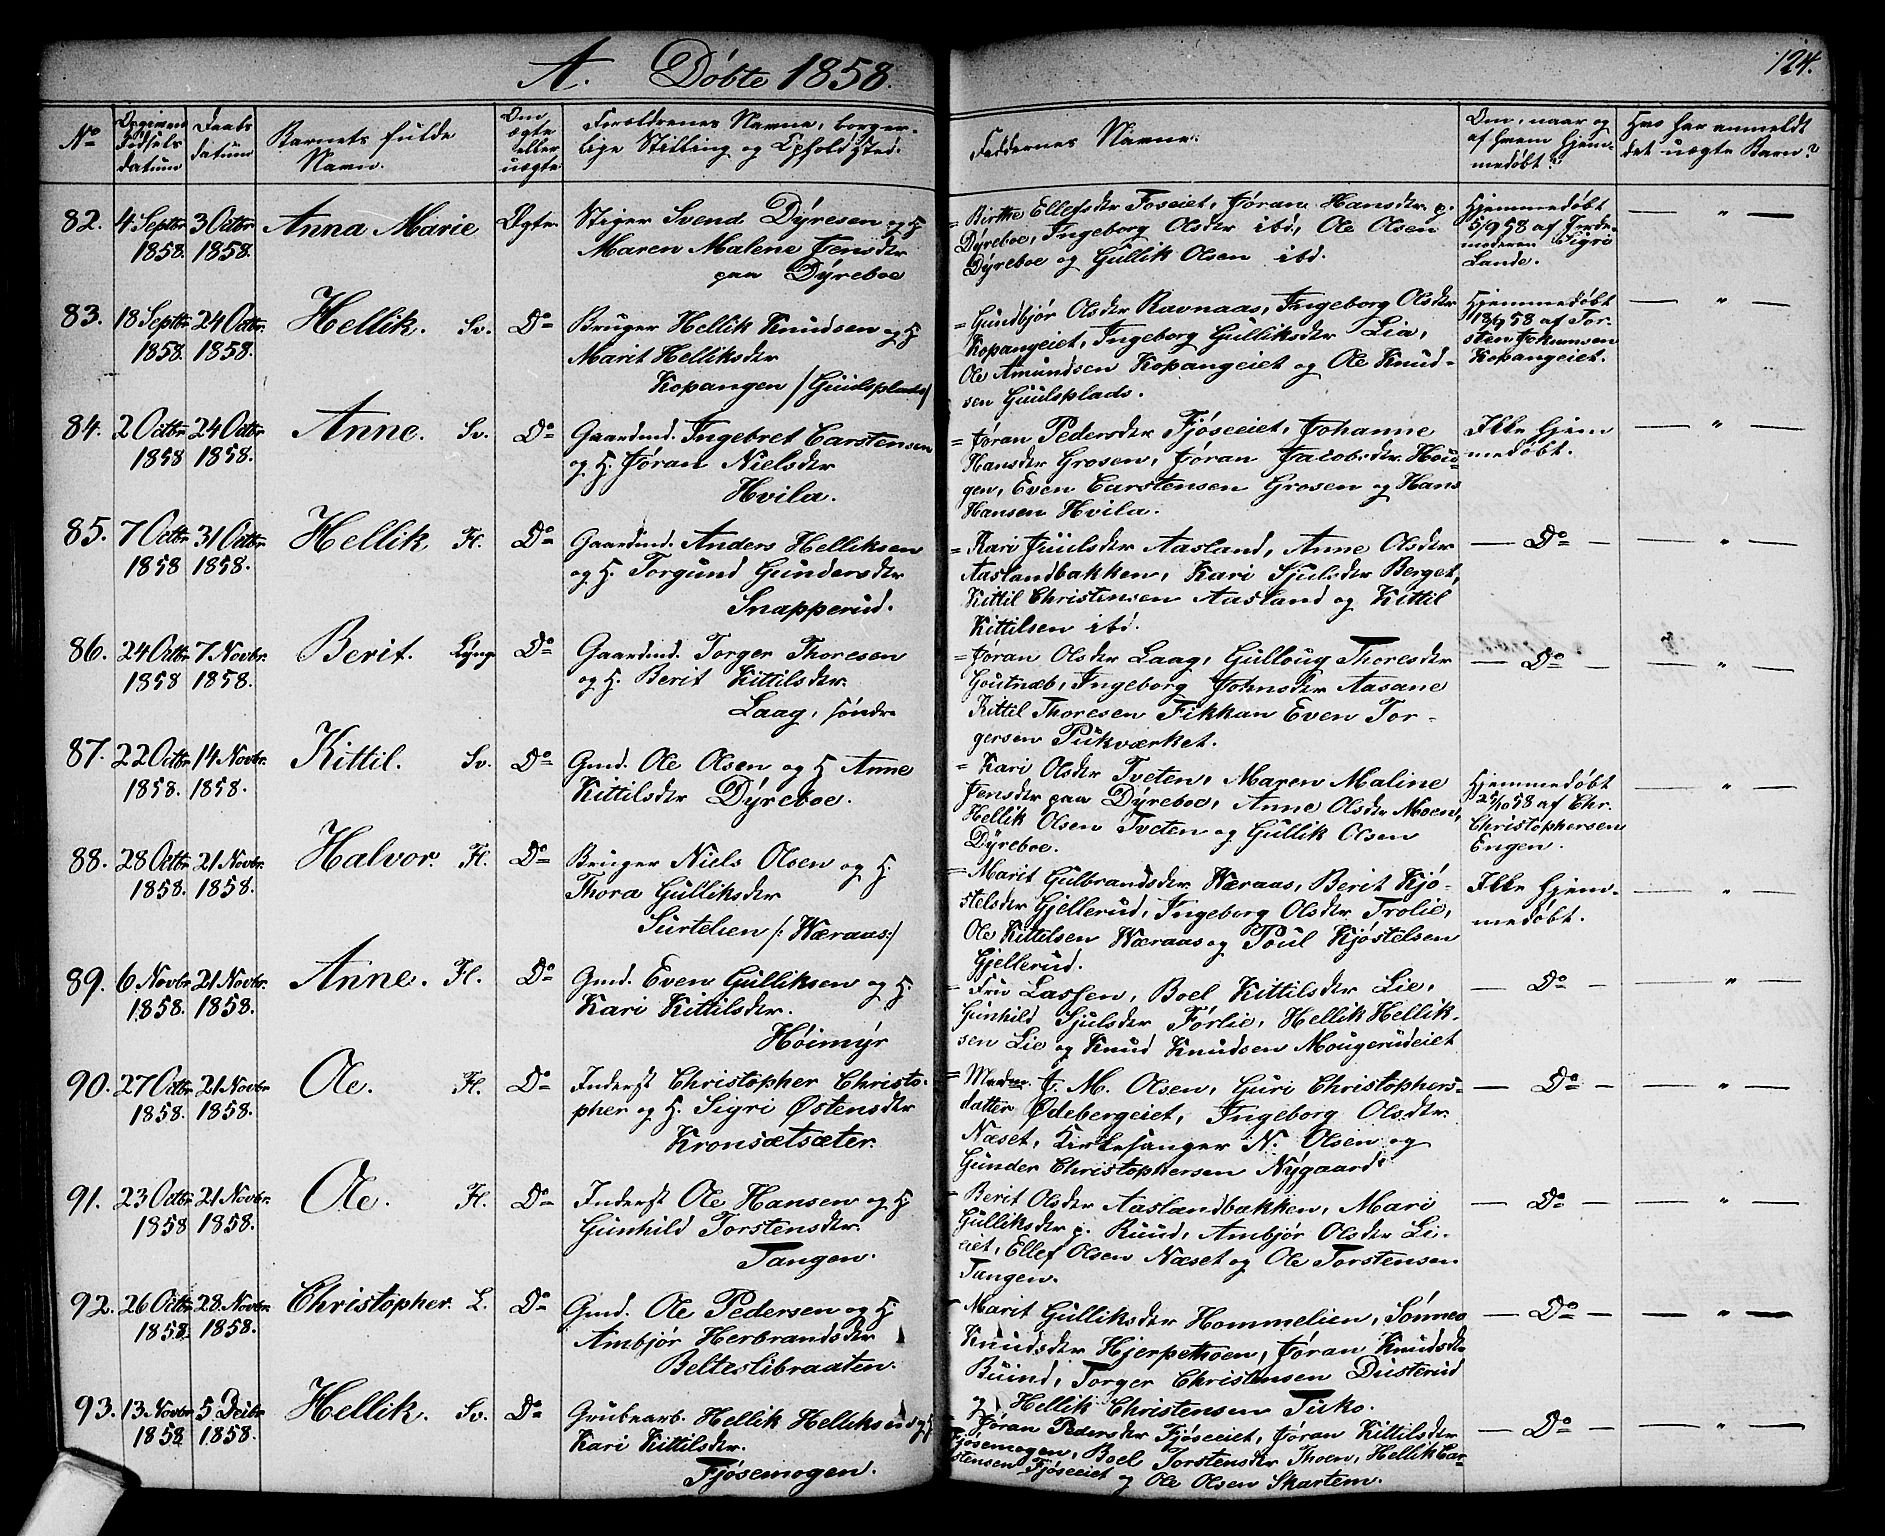 A. Døbte 1858.
124.
No
Opgivne Fødsels datum
Daabs datum
Barnets fulde Navn.
Om ægte eller uægte
Forældrenes Navne, borgerlige Stilling og Opholdsted.
Faddernes Navne.
Om, naar og af hvem hjemmedøbt?
Hvo har anmeldt det uægte Barn?
82. 4 Septbr 1858. 3 Octbr 1858. Anna Marie Ægte.
Stiger Svend Dÿresen og H
Maren Malene Jensdtr
paa Dÿreboe
= Birthe Ellefsdtr Foseiet, Jøran Hansdtr p.
Dÿreboe, Ingeborg Olsdtr ibd, Ole Olsen
Dÿreboe og Gullik Olsen ibd.
Hjemmedøbt
5/9 58 af Jorde-
moderen Sigri
Lande.
— " —
83. 18 Septbr 1858. 24 Octbr. 1858. Hellik. Sv. Do
Bruger Hellik Knudsen og H
Marit Helliksdtr
Kopangen /Guulsplads/
= Gundbjør Olsdtr Ravnaas, Ingeborg Olsdtr
Kopangeiet, Ingeborg Gulliksdtr Lia,
Ole Amundsen Kopangeiet og Ole Knud-
sen Guulsplads.
Hjemmedøbt
18/9 58 af Tor-
sten Johannsen
Kopangeiet.
— " —
84. 2 Octbr 1858 24 Octbr 1858. Anne. Sv. Do
Gaardmd. Ingebret Carstensen
og H. Jøran Nielsdtr
Hvila.
= Jøran Pedersdtr Fjøseeiet, Johanne
Hansdtr Grosen, Jøran Jacobsdtr Hou-
gen, Even Carstensen Grosen og Hans
Hansen Hvila.
Ikke hjem
medøbt.
— " —
85. 7 Octbr 1858 31 Octbr 1858. Hellik Fl. Do
Gaardmd. Anders Helliksen
og H. Torgund Gundersdtr
Snapperud.
= Kari Juulsdtr Aasland, Anne Olsdtr
Aaslandbakken, Kari Sjulsdtr Berget,
Kittil Christensen Aasland og Kittil
Kittilsen ibd.
— Do —
— " —
86. 24 Octbr 1858 7 Novbr. 1858. Berit. Lyng Do
Gaardmd. Torger Thoresen
og H. Berit Kittilsdtr.
Laag, søndre
= Jøran Olsdtr Laag, Gulloug Thoresdtr
Goutnæb, Ingeborg Johnsdtr Aasane
Kittil Thoresen Fikkan Even Tor-
gersen Pukværket.
— Do —
— " —
87. 22 Octbr 1858. 14 Novbr. 1858. Kittil. Sv. Do
Gmd. Ole Olsen og H Anne
Kittilsdtr Dÿreboe.
= Kari Olsdtr Tveten, Maren Maline
Jensdtr paa Dÿreboe, Anne Olsdtr Moen,
Hellik Olsen Tveten og Gullik Olsen
Dÿreboe.
Hjemmedøbt
25/10 58 af Chr.
Christophersen
Engen.
— " —
88. 28 Octbr 1858. 21 Novbr. 1858. Halvor. Fl. Do
Bruger Niels Olsen og H.
Thora Gulliksdtr
Surtelien /:Væraas:/
= Marit Gulbrandsdtr Væraas, Berit Kjø-
stelsdtr Gjellerud, Ingeborg Olsdtr Trolie,
Ole Kittilsen Væraas og Poul Kjøstelsen
Gjellerud.
Ikke hjem-
medøbt.
— " —
89. 6 Novbr. 1858. 21 Novbr. 1858. Anne. Fl. Do
Gmd. Even Gulliksen og H
Kari Kittilsdtr.
Høimÿr
= Fru Lassen, Boel Kittilsdtr Lie,
Gunhild Sjulsdtr Førlie, Hellik Hellik-
sen Lie og Knud Knudsen Mougerudeiet
— Do —
— " —
90. 27 Octbr 1858. 21 Novbr 1858. Ole. Fl. Do
Inderst Christopher Christo-
pher og H. Sigri Østensdtr
Kronsætsæter.
= Madm. J. M. Olsen, Guri Christophers-
datter Ødebergeiet, Ingeborg Olsdtr.
Næset, Kirkesanger N. Olsen og
Gunder Christophersen Nÿgaard.
— Do —
— " —
91. 23 Octbr 1858 21 Novbr. 1858. Ole. Fl. Do
Inderst Ole Hansen og H
Gunhild Torstensdtr.
Tangen.
= Berit Olsdtr Aaslandbakken, Mari
Gulliksdtr p. Ruud, Ambjør Olsdtr Li-
eiet, Ellef Olsen Næset og Ole Torstensen
Tangen.
— Do —
— " —
92. 26 Octbr 1858. 28 Novbr. 1858. Christopher. L. Do
Gmd. Ole Pedersen og H.
Ambjør Herbrandsdtr
Belteslibraaten.
Marit Gulliksdtr Hommelien, Sønnev
Knudsdtr Hjerpethoen, Jøran Knudsdtr
Buind, Torger Christensen Dusterud
og Hellik Christensen Tuko.
— Do —
— " —
93. 13 Novbr 1858 5 Decbr 1858. Hellik. Sv. Do
Grubearb. Hellik Helliksen og H
Kari Kittilsdtr.
Fjøsemogen.
Jøran Pedersdtr Fjøseeiet, Jøran Kittilsdtr
Fjøsemogen, Boel Torstensdtr Thoen, Hellik Car-
stensen Fjøseeiet og Ole Olsen Skartem.
— Do —
— " —